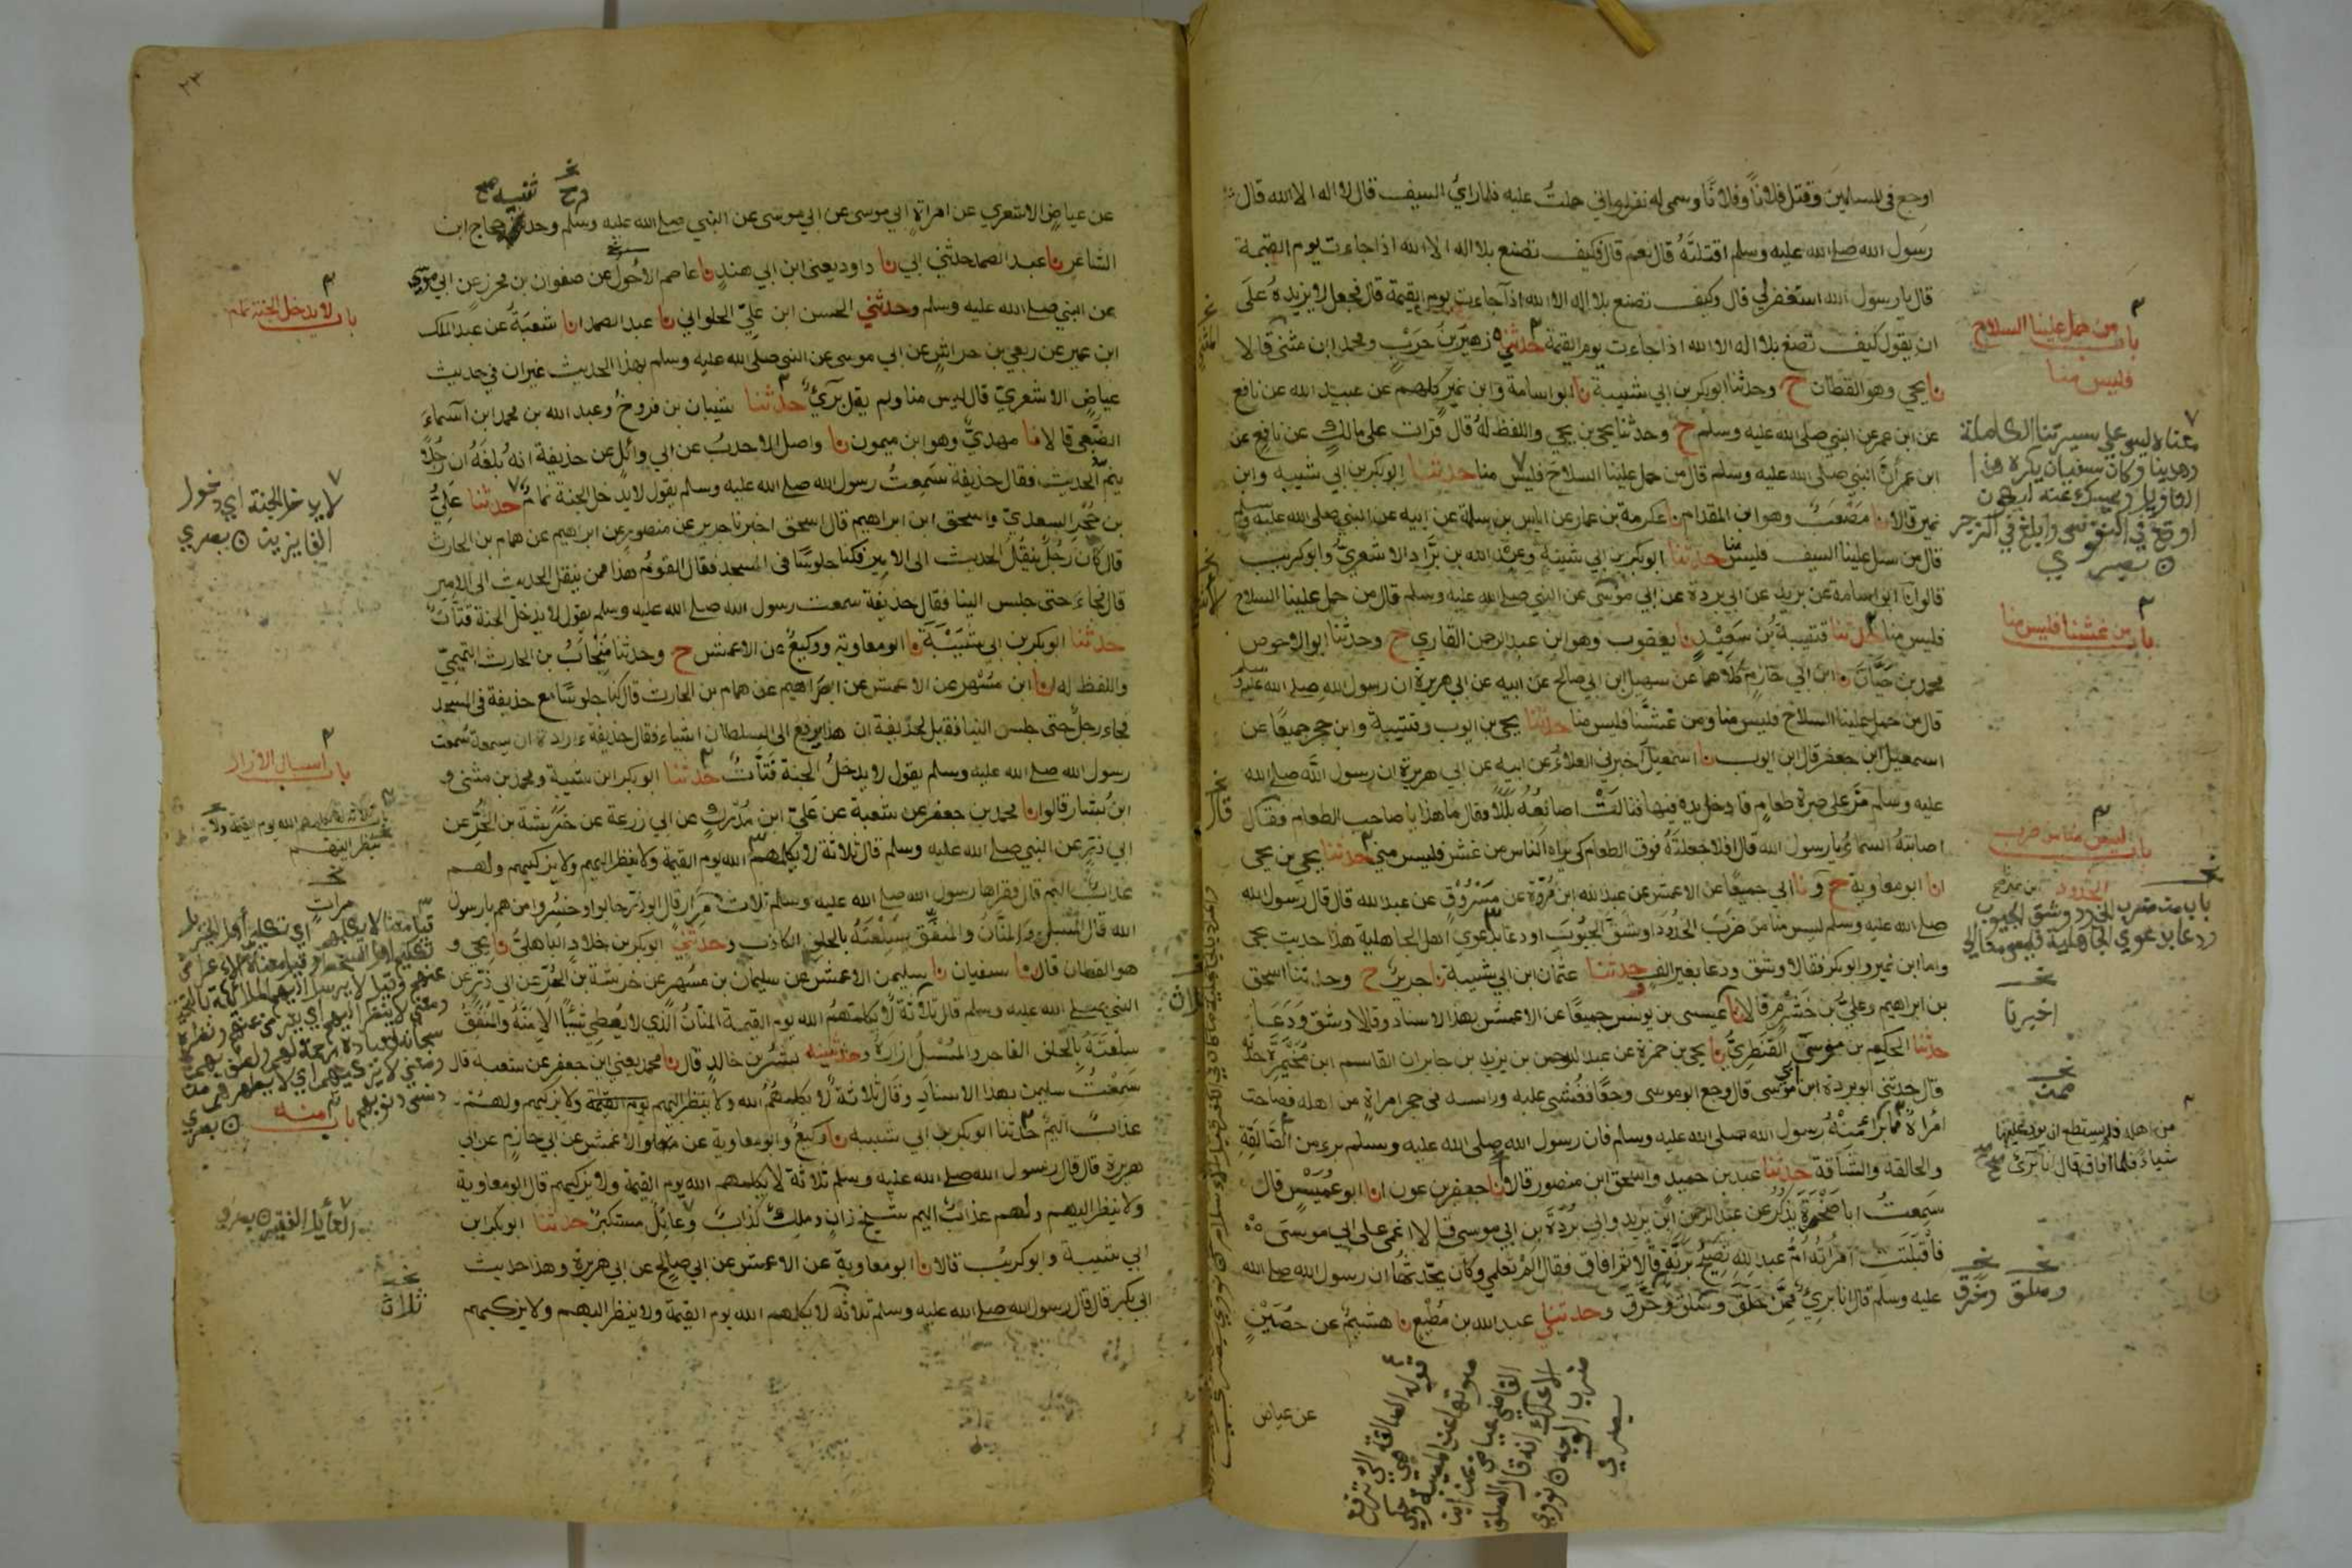 اوجع في المسلمين وقتل فلانا وفلانا وسمى له نفرا واني حملت عليه فلما راى السيف قال لا اله الا الله قال
رسول الله صلى الله عليه وسلم اقتلته قال نعم قال فكيف تصنع بلا اله الا الله اذا جاءت يوم القيمة
قال يا رسول الله استغفر لي قال وكيف تصنع بلا اله الا الله اذا جاءت يوم القيمة قال فجعل لا يزيده على
ان يقول كيف تصنع بلا اله الا الله اذا جاءت يوم القيمة حدثني زهير بن حرب ومحمد ابن مثنى قالا
نا يحي وهو القطان ح وحدثنا ابو بكر بن ابي شيبة نا ابو اسامة وابن نمير كلهم عن عبيد الله عن نافع
عن ابن عمر عن النبي صلى الله عليه وسلم ح وحدثنا يحي بن يحي واللفظ له قال قرات على مالك عن نافع عن
ابن عمر ان النبي صلى الله عليه وسلم قال من حمل علينا السلاح فليس منا حدثنا ابو بكر بن ابي شيبه وابن
نمير قالا نا مصعب وهو ابن المقدام نا عكرمة بن عمار عن اياس بن سلمة عن ابيه عن النبي صلى الله عليه وسلم
قال من سل علينا السيف فليس منا حدثنا ابو بكر بن ابي شيبة وعبد الله بن براد الاشعري وابو كريب
قالوا نا ابو اسامة عن بريد عن ابي بردة عن ابي موسى عن النبي صلى الله عليه وسلم قال من حمل علينا السلاح
فليس منا حدثنا قتيبة بن سعيد نا يعقوب وهو ابن عبد الرحمن القاري ح وحدثنا ابو الاحوص
محمد بن حيان نا ابن ابي حازم كلاهما عن سهيل ابن ابي صالح عن ابيه عن ابي هريرة ان رسول الله صلى الله عليه وسلم
قال من حمل علينا السلاح فليس منا ومن غشنا فليس منا حدثنا يحي بن ايوب وقتيبة وابن حجر جميعا عن
اسمعيل ابن جعفر قال ابن ايوب نا اسمعيل اخبرني العلاء عن ابيه عن ابي هريرة ان رسول الله صلى الله
عليه وسلم مر على صبرة طعام فادخل يده فيها فنالت اصابعه بللا فقال ما هذا يا صاحب الطعام فقال
اصابته السماء يا رسول الله قال افلا جعلته فوق الطعام كي يراه الناس من غش فليس مني حدثنا يحي بن يحي
انا ابو معاوية ح ونا ابي جميعا عن الاعمش عن عبد الله ابن مرة عن مسروق عن عبد الله قال قال رسول الله
صلى الله عليه وسلم ليس منا من ضرب الخدود او شق الجيوب او دعا بدعوى اهل الجاهلية هذا حديث يحي
واما ابن نمير وابو بكر فقالا وشق ودعا بغير الف وحدثنا عثمان ابن ابي شيبة نا جرير ح وحدثنا اسحق
بن ابراهيم وعلي بن خشرم قالا نا عيسى بن يونس جميعا عن الاعمش بهذا الاسناد وقالا وشق ودعا
حدثنا الحكم بن موسى القنطري نا يحي بن حمزة عن عبد الرحمن بن يزيد بن جابر ان القاسم ابن مخيمرة حدثه
قال حدثني ابو بردة ابن ابي موسى قال وجع ابو موسى وجعا فغشي عليه وراسه في حجر امراة من اهله فصاحت
امراة مما برا منه رسول الله صلى الله عليه وسلم فان رسول الله صلى الله عليه وسلم برء من الصالقة
والحالقة والشاقة حدثنا عبد بن حميد واسحق ابن منصور قالا نا جعفر بن عون انا ابو عميس قال
سمعت ابا صخرة يذكر عن عبد الرحمن ابن يزيد وابي بردة بن ابي موسى قالا اغمي على ابي موسى
فاقبلت امراته ام عبد الله تصيح برنة قالا ثم افاق فقال الم تعلمي وكان يحدثها ان رسول الله صلى الله
عليه وسلم قال انا بريء ممن حلق وسلق وخرق وحدثني عبد الله بن مطيع نا هشيم عن حصين
عن عياض
باب من حمل علينا السلاح
فليس منا
معناه ليس على سيرتنا الكاملة
وهدينا وكان سفيان يكره هذا
اوقع في النفوس وابلغ في الزجر
باب من غشنا فليس منا
باب ليس منا من ضرب
الخدود
باب من ضرب الخدود وشق الجيوب
ودعا بدعوي الجاهلية
اخبرنا
من اهله فلم يستطع ان يرد عليها
شياء فلما افاق قال انا برئ
وصلق وخرق
قوله الصالقة هي التي ترفع
صوتها عند المصيبة وحكي
القاضي عياض عن ابن
الاعرابي انه قال الصلق
ضرب الوجه نووي
٢٣
عن عياض الاشعري عن امراة ابي موسى عن ابي موسى عن النبي صلى الله عليه وسلم وحدثنيه حجاج ابن
الشاعر نا عبد الصمد حدثني ابي نا داود يعني ابن ابي هند نا عاصم الاحول عن صفوان بن محرز عن ابي موسى
عن النبي صلى الله عليه وسلم وحدثني الحسن ابن علي الحلواني نا عبد الصمد انا شعبة عن عبد الملك
ابن عمير عن ربعي بن حراش عن ابي موسى عن النبي صلى الله عليه وسلم بهذا الحديث غير ان في حديث
عياض الاشعري قال ليس منا ولم يقل بريء حدثنا شيبان بن فروخ وعبد الله بن محمد ابن اسماء
الضبعي قالا نا مهدي وهو ابن ميمون نا واصل الاحدب عن ابي وائل عن حذيفة انه بلغه ان رجلا
ينم الحديث فقال حذيفة سمعت رسول الله صلى الله عليه وسلم يقول لا يدخل الجنة نمام حدثنا علي
بن حجر السعدي واسحق ابن ابراهيم قال اسحق اخبرنا جرير عن منصور عن ابراهيم عن همام بن الحارث
قال كان رجل ينقل الحديث الى الامير فكنا جلوسا في المسجد فقال القوم هذا ممن ينقل الحديث الى الامير
قال فجاء حتى جلس الينا فقال حذيفة سمعت رسول الله صلى الله عليه وسلم يقول لا يدخل الجنة قتات
حدثنا ابو بكر بن ابي شيبة نا ابو معاوية ووكيع عن الاعمش ح وحدثنا منجاب بن الحارث التميمي
واللفظ له انا ابن مسهر عن الاعمش عن ابراهيم عن همام بن الحارث قال كنا جلوسا مع حذيفة في المسجد
فجاء رجل حتى جلس الينا فقيل لحذيفة ان هذا يرفع الى السلطان اشياء فقال حذيفة ارادة ان يسمعه سمعت
رسول الله صلى الله عليه وسلم يقول لا يدخل الجنة قتات حدثنا ابو بكر ابن شيبة ومحمد بن مثنى و
ابن بشار قالوا نا محمد بن جعفر عن شعبة عن علي ابن مدرك عن ابي زرعة عن خرشة بن الحر عن
ابي ذر عن النبي صلى الله عليه وسلم قال ثلاثة لا يكلمهم الله يوم القيمة ولا ينظر اليهم ولا يزكيهم ولهم
عذاب اليم قال فقراها رسول الله صلى الله عليه وسلم ثلاث مرار قال ابو ذر خابوا وخسروا من هم يا رسول
الله قال المسبل والمنان والمنفق سلعته بالحلف الكاذب وحدثني ابو بكر بن خلاد الباهلي نا يحي و
هو القطان قال نا سفيان نا سليمن الاعمش عن سليمان بن مسهر عن خرشة بن الحر عن ابي ذر عن
النبي صلى الله عليه وسلم قال ثلاثة لا يكلمهم الله يوم القيمة المنان الذي لا يعطي شيئا الا منه والمنفق
سلعته بالحلف الفاجر والمسبل ازاره وحدثنيه بشر بن خالد قال نا محمد يعني ابن جعفر عن شعبه قال
سمعت سليمن بهذا الاسناد وقال ثلاثة لا يكلمهم الله ولا ينظر اليهم يوم القيمة ولا يزكيهم ولهم
عذاب اليم حدثنا ابو بكر بن ابي شيبه نا وكيع وابو معاوية عن الاعمش عن ابي حازم عن ابي
هريرة قال قال رسول الله صلى الله عليه وسلم ثلاثة لا يكلمهم الله يوم القيمة ولا يزكيهم قال ابو معاوية
ولا ينظر اليهم ولهم عذاب اليم شيخ زان وملك كذاب وعايل مستكبر حدثنا ابو بكر ابن
ابي شيبة وابو كريب قالا نا ابو معاوية عن الاعمش عن ابي صالح عن ابي هريرة وهذا حديث
ابي بكر قال قال رسول الله صلى الله عليه وسلم ثلاثة لا يكلمهم الله يوم القيمة ولا ينظر اليهم ولا يزكيهم
باب لا يدخل الجنة نمام
لا يدخل الجنة اي دخول
الفايزين
باب اسبال الازار
مرات
باب منه
العايل الفقير
ثلاث